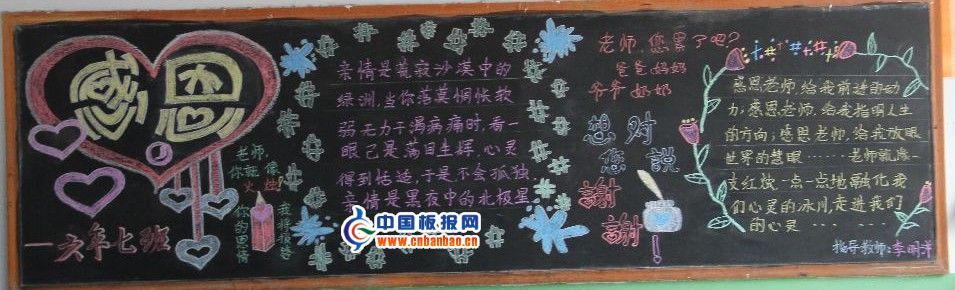 感恩
老师,
你就像
火炬!
你的恩情
我将报答
一六年七班
亲情是荒寂沙漠中的
绿洲,当你落莫惆怅软
弱无力干渴病痛时,看一
眼已是满目生辉,心灵
得到恬适,于是不会孤独
亲情是黑夜中的北极星
中国板报网
www.cnbanbao.cn
老师,您累了吧?
爸爸妈妈
爷爷奶奶
想对
您説
謝
謝
感恩老师,给我前进的动
力;感恩老师,给我指明人生
的方向;感恩老师,给我放眼
世界的慧眼……老师就像一
支红烛一点一点地融化我
们心灵的冰川,走进我们
的心灵……
指导教师:李明洋